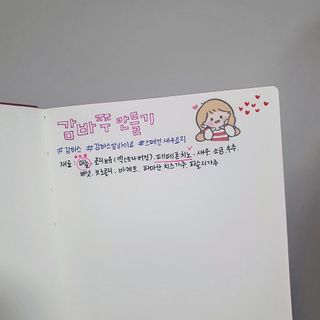 감바쓰 만들기
#감바스 #감바스알아히요 #스페인새우요리
재료 : 마늘, 올리브유(엑스트라버진), 페페론치노, 새우, 소금, 후추,
버섯, 브로콜리, 바게트, 파마산 치즈가루, 파슬리가루